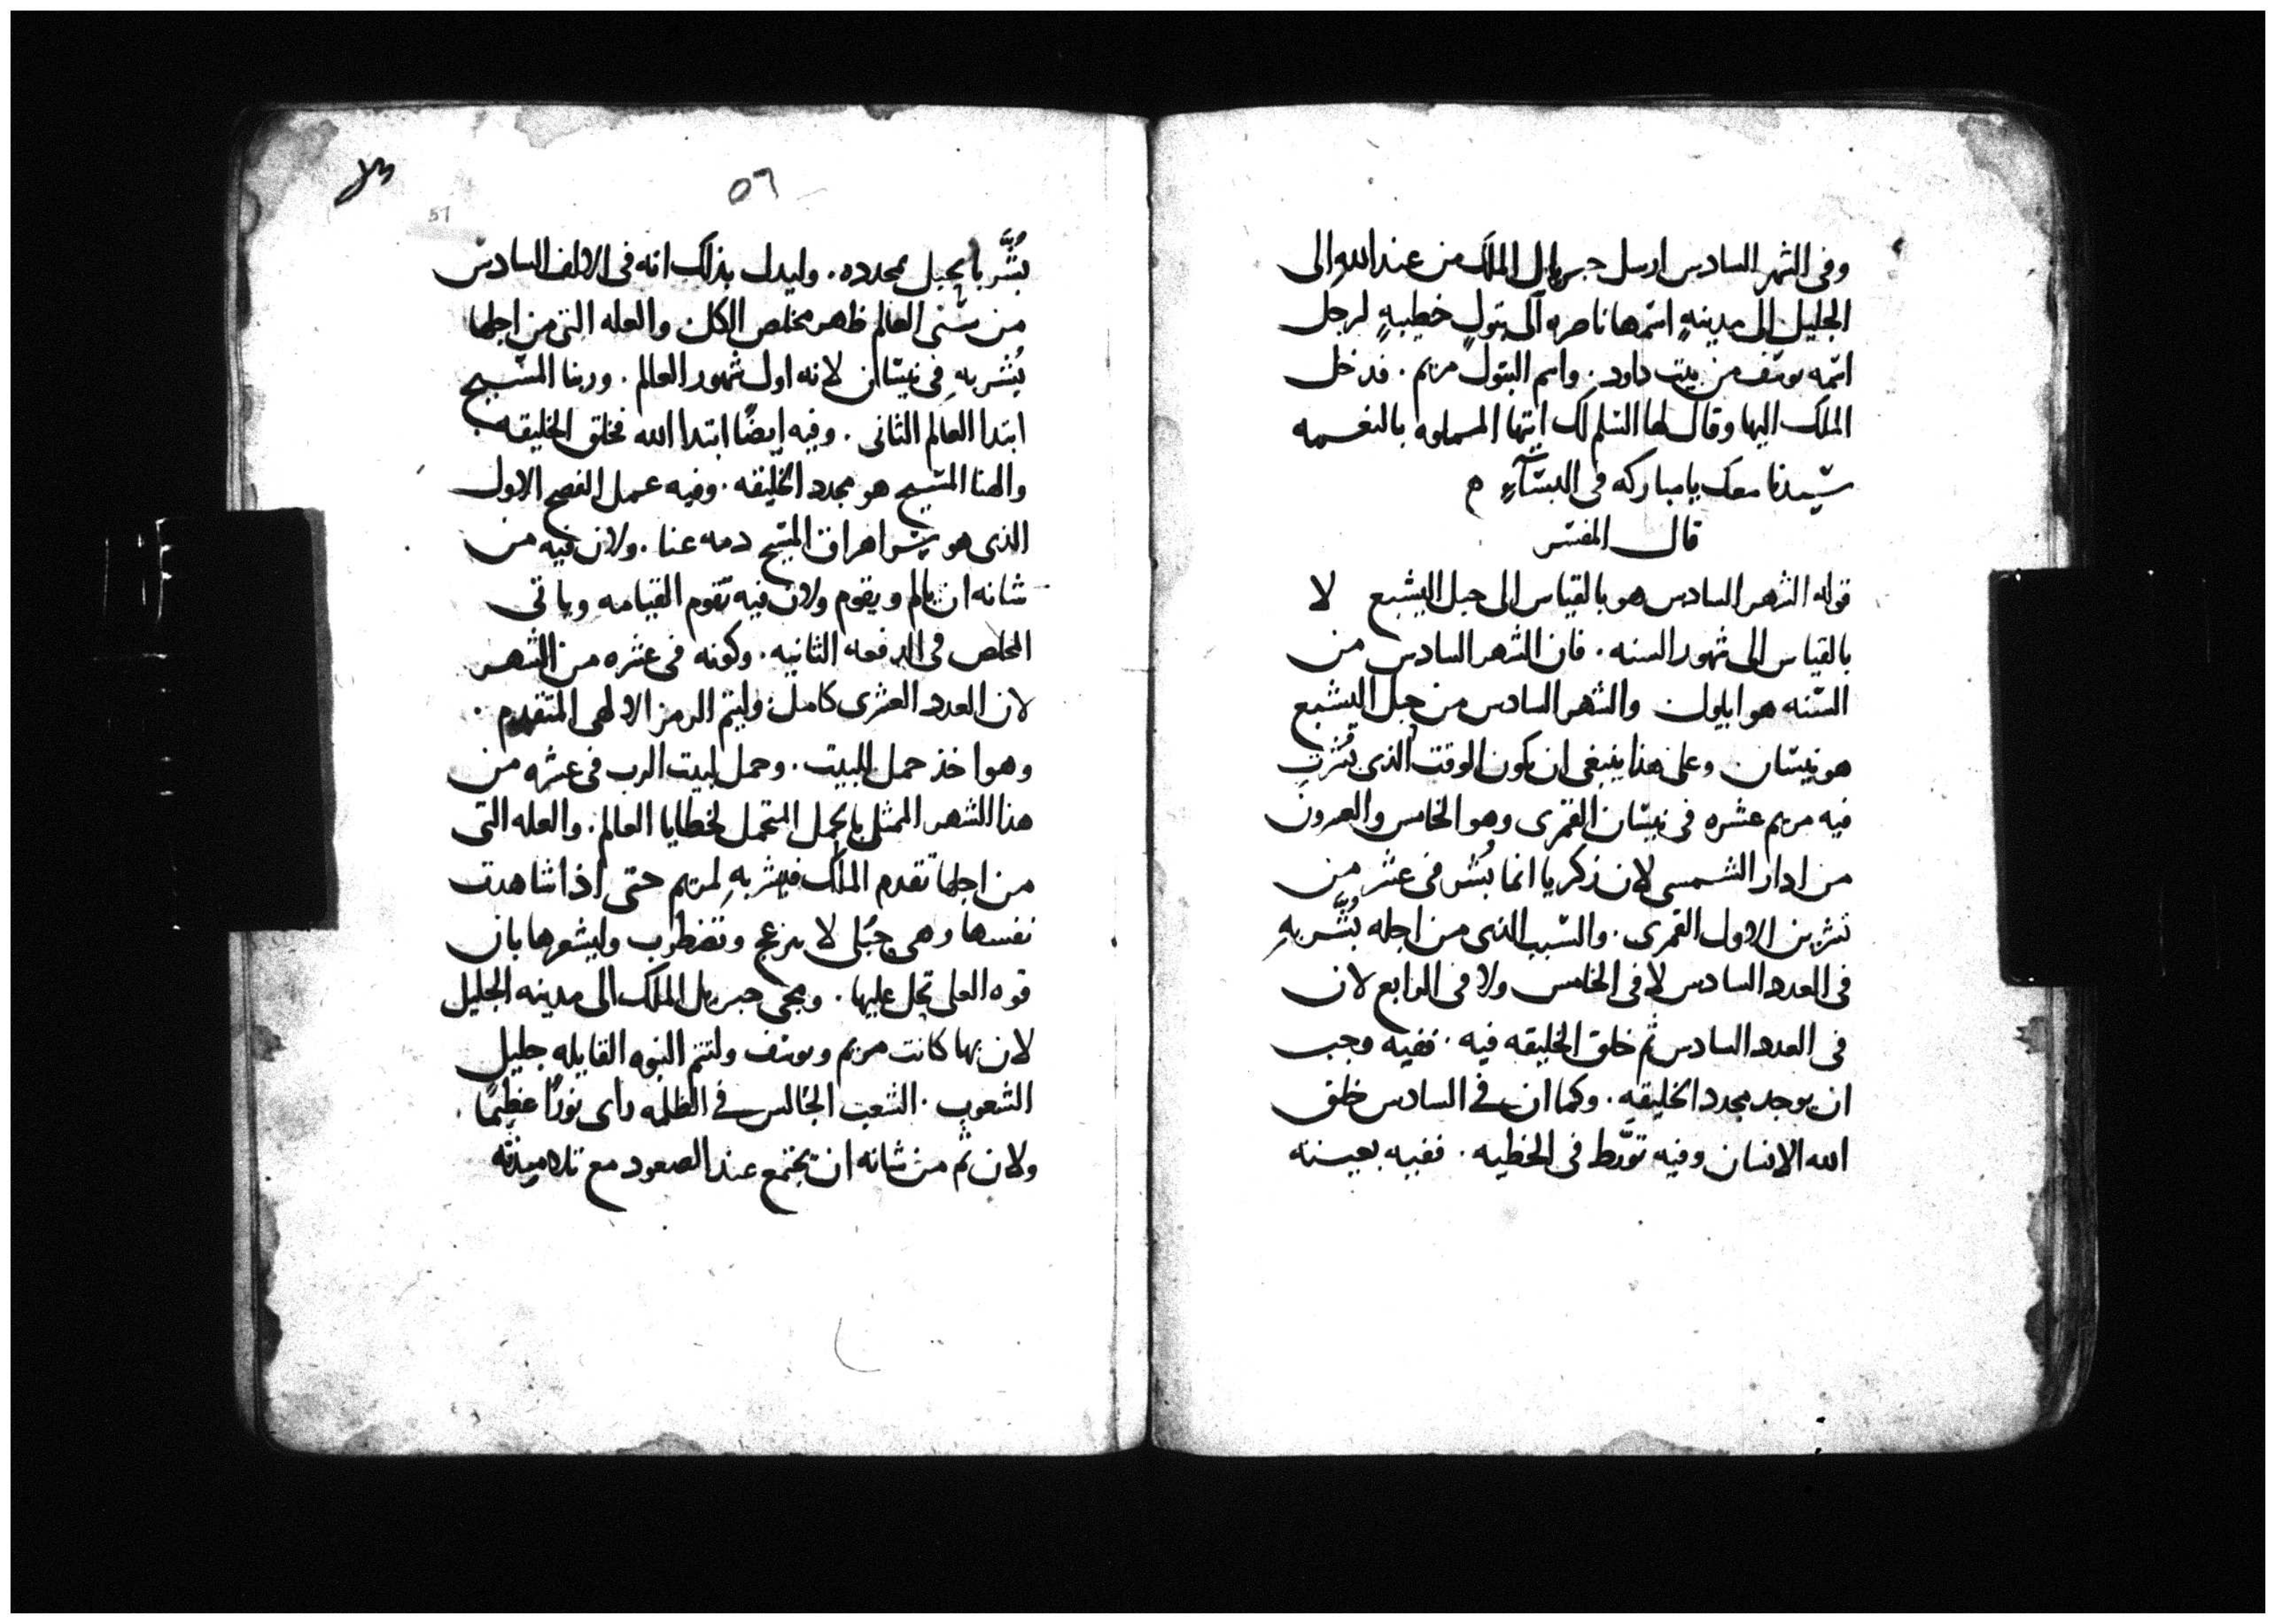 وفى الشهر السادس ارسل جبريل الملَك من عند الله الى
الجليل الى مدينهٍ اسمها ناصره الى بتولٍ خطيبهٍ لرجل
اسمه يوسف من بيت داود. واسم البتول مريم. فدخل
الملَك اليها وقال لها السلم لك ايتها المملوه بالنعمه
سيدنا معك يا مباركه فى النسآءِ م
قال المفسر
قوله الشهر السادس هو بالقياس الى حبل اليشبع لا
بالقياس الى شهور السنه. فان الشهر السادس من
السنه هو ايلول والشهر السادس من حبل اليشبع
هو نيسان وعلى هذا ينبغى ان يكون الوقت الذى بُشرت
فيه مريم عشره فى نيسان القمرى وهو الخامس والعشرون
من ادار الشمسى لان زكريا انما بُشر فى عشر من
تشرين الاول القمرى. والسبب الذى من اجله بُشّر بهِ
فى العدد السادس لا فى الخامس ولا فى الرابع لان
فى العدد السادس تم خلق الخليقه فيه. ففيه وجب
ان يوجد مجدد الخليقه. وكما ان في السادس خلق
الله الانسان وفيه تورَّط فى الخطيه. ففيه بعينه
٥٦
51
بُشّر بالحبل بمجدده. وليدل بذلك انه فى الالف السادس
من سنى العالم ظهر مخلص الكل والعله التى من اجلها
بُشر بهِ فى نيسان لانه اول شهور العالم. وربنا المسيح
ابتدا العالم الثانى. وفيه ايضًا ابتدا الله فخلق الخليقه
والهنا المسيح هو مجدد الخليقه. وفيه عمل الفصح الاول
الذى هو سر اهراق المسيح دمه عنا. ولان فيه من
شانه ان يالم ويقوم ولان فيه تقوم القيامه وياتى
المخلص فى الدفعه الثانيه. وكونه فى عشره من الشهر
لان العدد العشرى كامل وليتم الرمز الالهى المتقدم.
وهو اخذ حمل للبيت. وحمل لبيت الرب فى عشره من
هذا الشهر الممثل بالحمل المتحمل لخطايا العالم. والعله التى
من اجلها تقدم الملَك فبشر بهِ لمريم حتى اذا شاهدت
نفسها وهى حبلى لا ينزعج وتضطرب وليشعرها بان
قوه العلى تحل عليها. ومجى جبريل الملك الى مدينه الجليل
لان بها كانت مريم ويوسف ولتتم النبوه القايله جليل
الشعوب. الشعب الجالس في الظلمه راى نورًا عظيمًا.
ولان ثم من شانه ان يجتمع عند الصعود مع تلاميذه